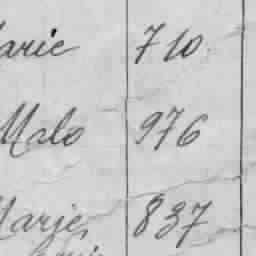 Marie 710
Malo 976
Marie, 837